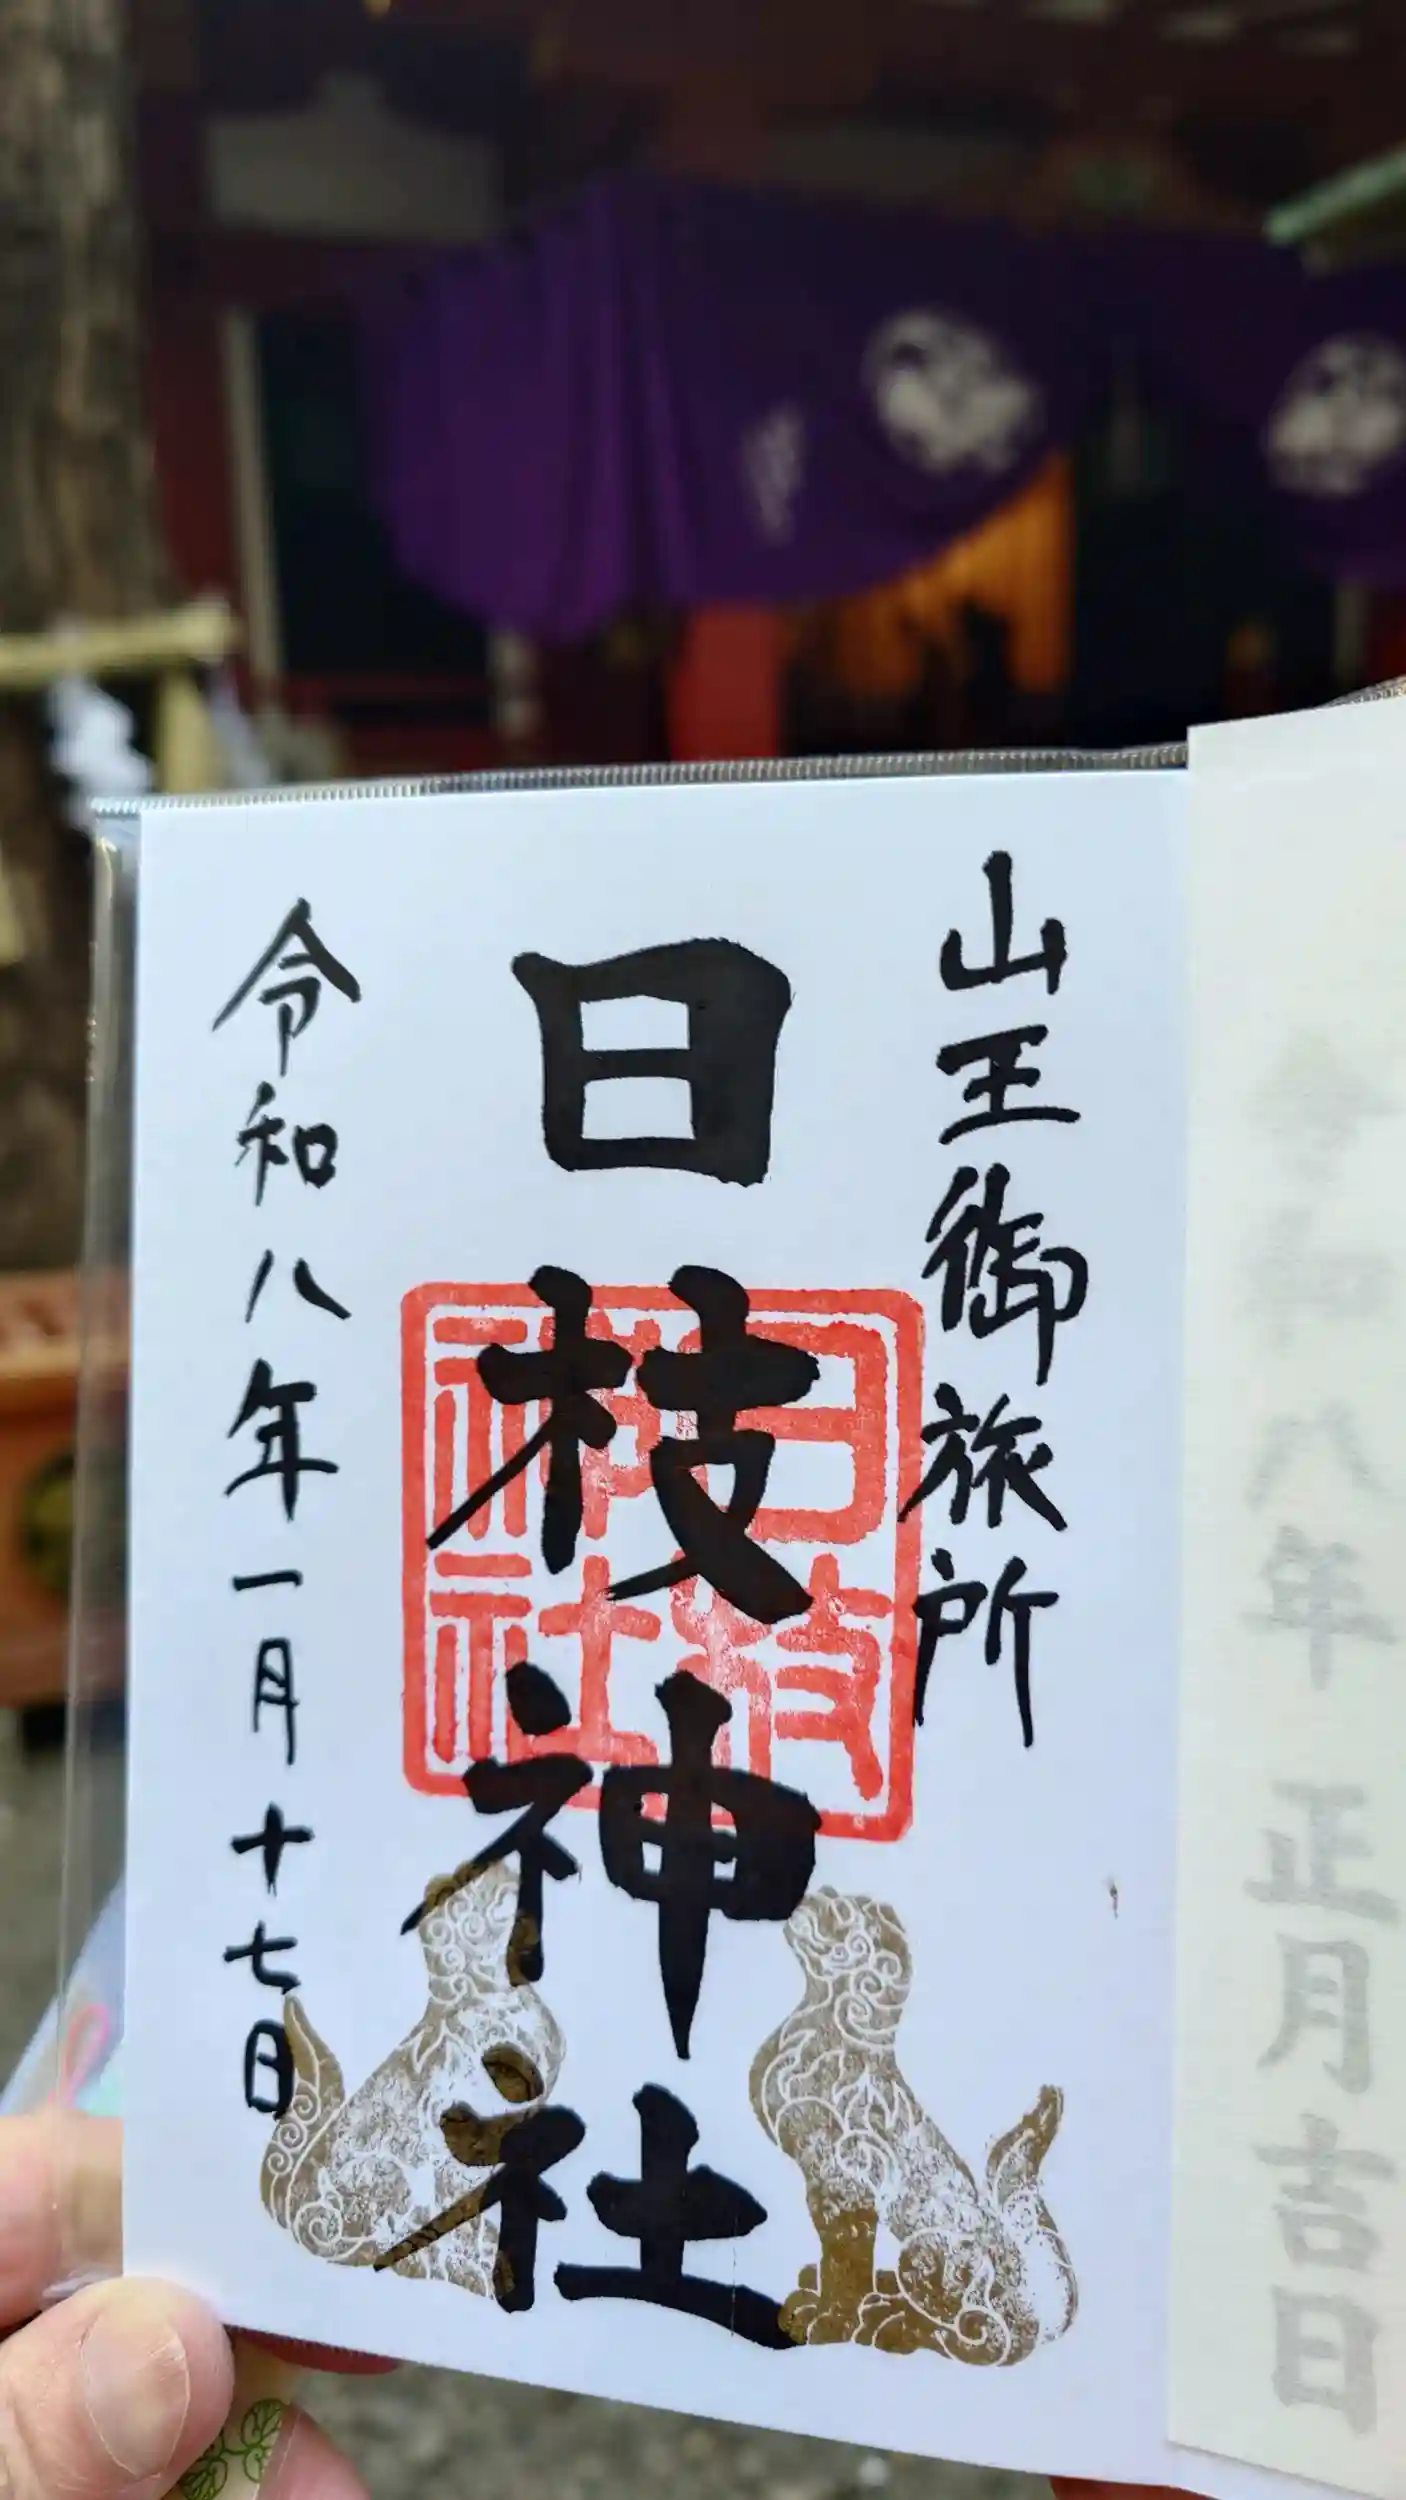 山王御旅所
日枝神社
日枝神社
令和八年一月十七日
令和八年正月吉日